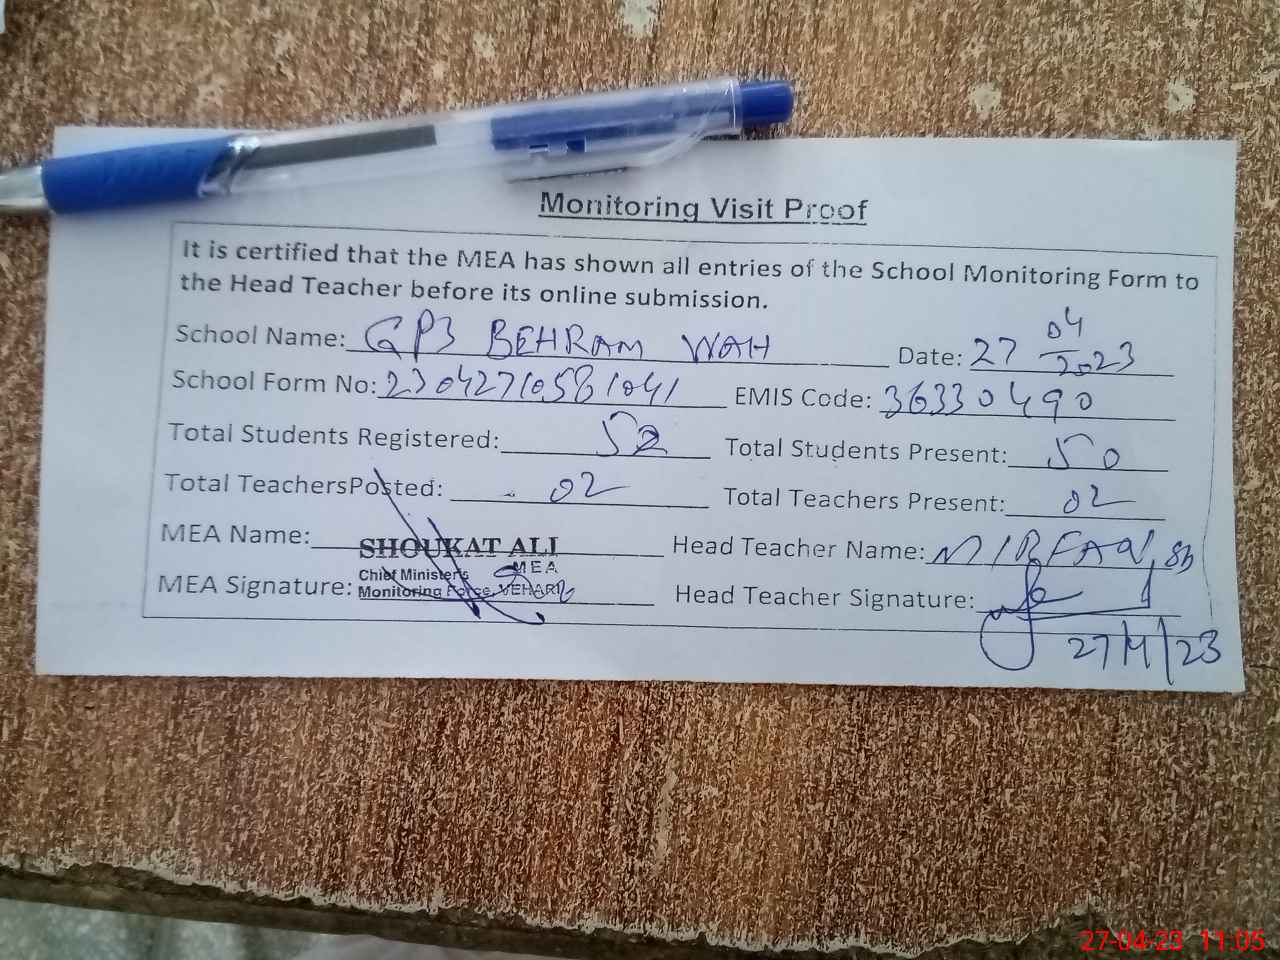 Monitoring Visit Proof
It is certified that the MEA has shown all entries of the School Monitoring Form to
the Head Teacher before its online submission.
School Name: GPS BEHRAM WAH Date: 27 04 2023
School Form No: 23042710581041 EMIS Code: 36330490
Total Students Registered: 52 Total Students Present: 50
Total TeachersPosted: 02 Total Teachers Present: 02
MEA Name: SHOUKAT ALI Head Teacher Name: M IRFAN
MEA
Chief Minister's
MEA Signature: Monitoring Force, VEHARI Head Teacher Signature:
27/4/23
27-04-23 11:05